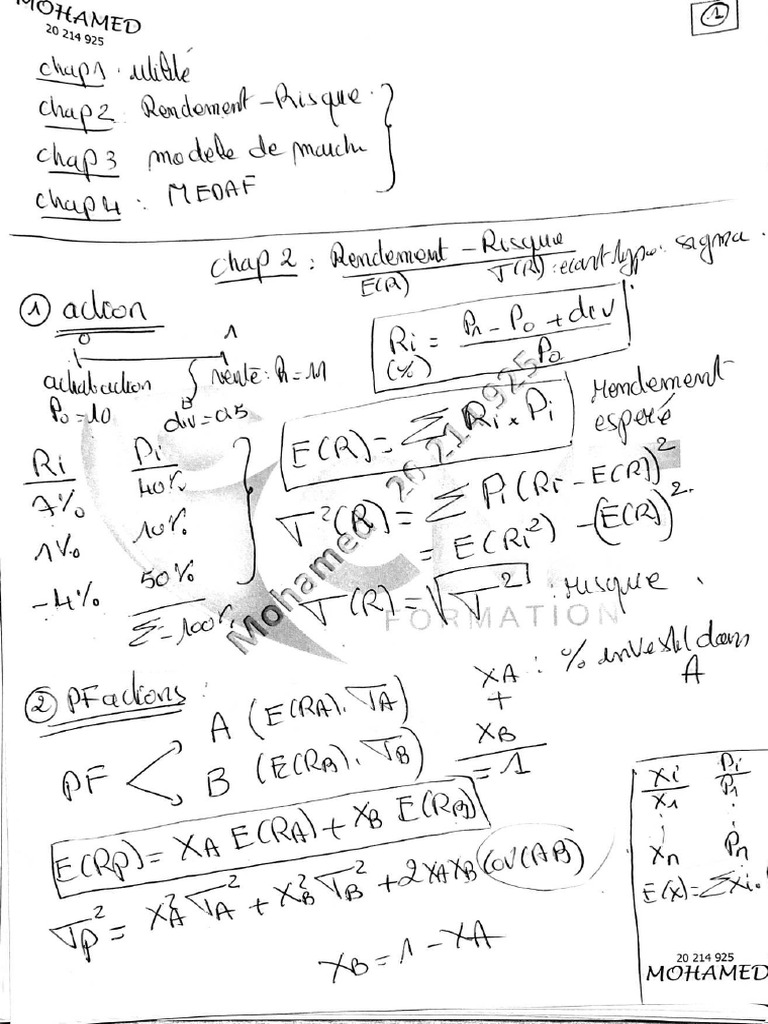 MOHAMED
20 214 925
1
chap1 : utilité
chap2 : Rendement - Risque
chap3 modele de marché
chap4 : MEDAF
Chap 2 : Rendement - Risque
E(R) σ(R) : ecart type : sigma.
① action
0 1
achat action vente : P1 = 11
P0 = 10 div = 0,5
Ri = (P1 - P0 + div) / P0
(%)
Ri Pi
7% 40%
1% 10%
-4% 50%
Σ = 100%
E(R) = Σ Ri x Pi rendement espéré
σ²(R) = Σ Pi (Ri - E(R))²
= E(Ri²) - (E(R))²
σ(R) = √σ² : risque.
FORMATION
Mohamed 20 214 925
② PF actions :
PF
A (E(RA), σA)
B (E(RB), σB)
XA : % investi dans A
+
XB
= 1
E(RP) = XA E(RA) + XB E(RB)
σP² = XA² σA² + XB² σB² + 2XAXB COV(AB)
XB = 1 - XA
Xi Pi
X1 P1
Xn Pn
E(x) = ΣXi.
20 214 925
MOHAMED